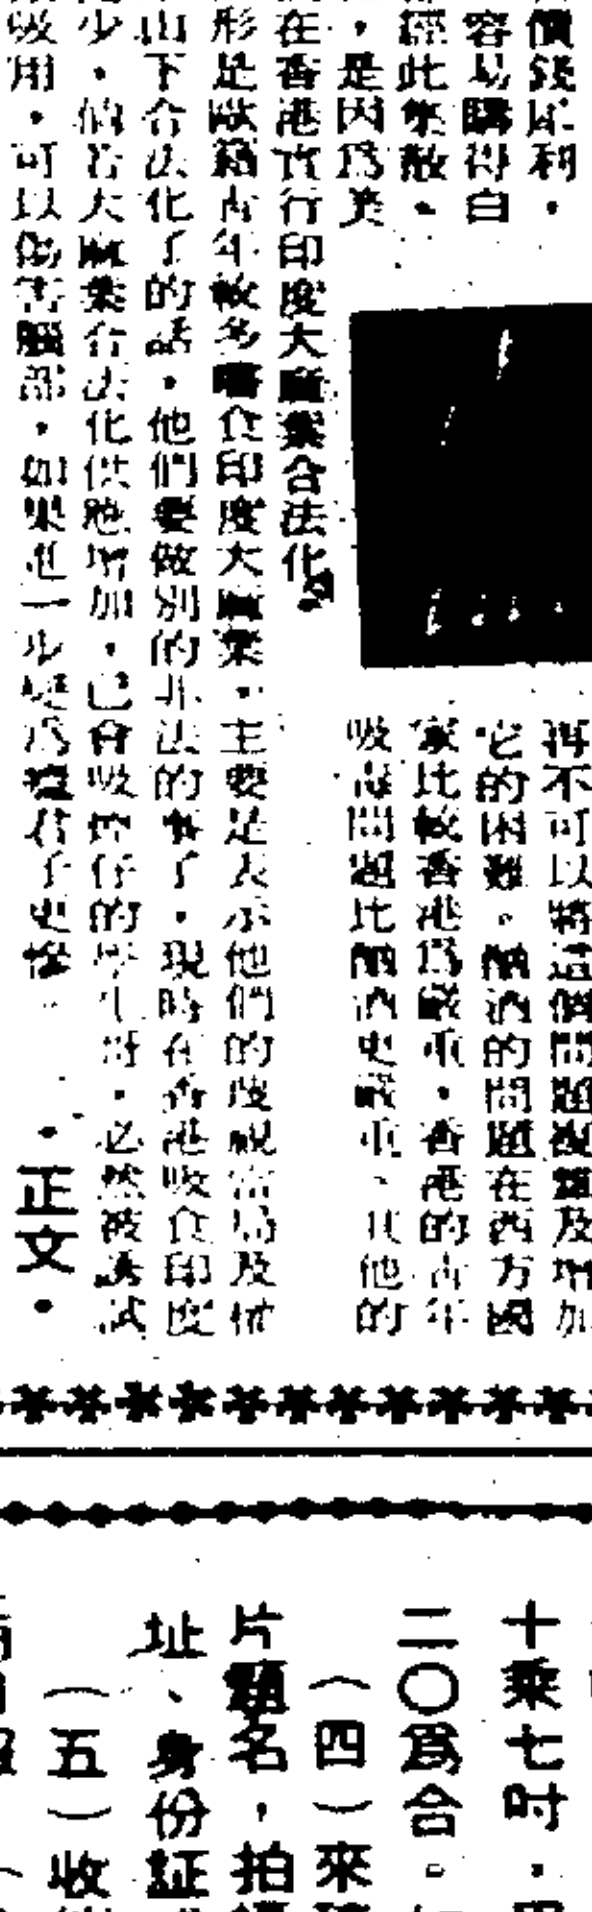 價錢
容易購得白
經此集散。
，是因爲美
在香港實行印度大麻葉合法化
形是歐籍青年較多嗜食印度大麻葉。主要是表示他們的蔑視當局及
下合法化了的話，他們要做別的非法的事了。現時在香港吸食印度
少，倘若大麻葉合法化供應增加，已會吸煙仔的學生哥，必然被誘試
吸用，可以傷害腦部，如果進一步變爲癮君子更慘。
・正文・
再不可以將這個問題複雜及增加
它的困難。酗酒的問題在西方國
家比較香港爲嚴重，香港的青年
吸毒問題比酗酒更嚴重、其他的
十乘七吋，
二〇爲合。
（四）來
片題名，拍
址、身份証
（五）收